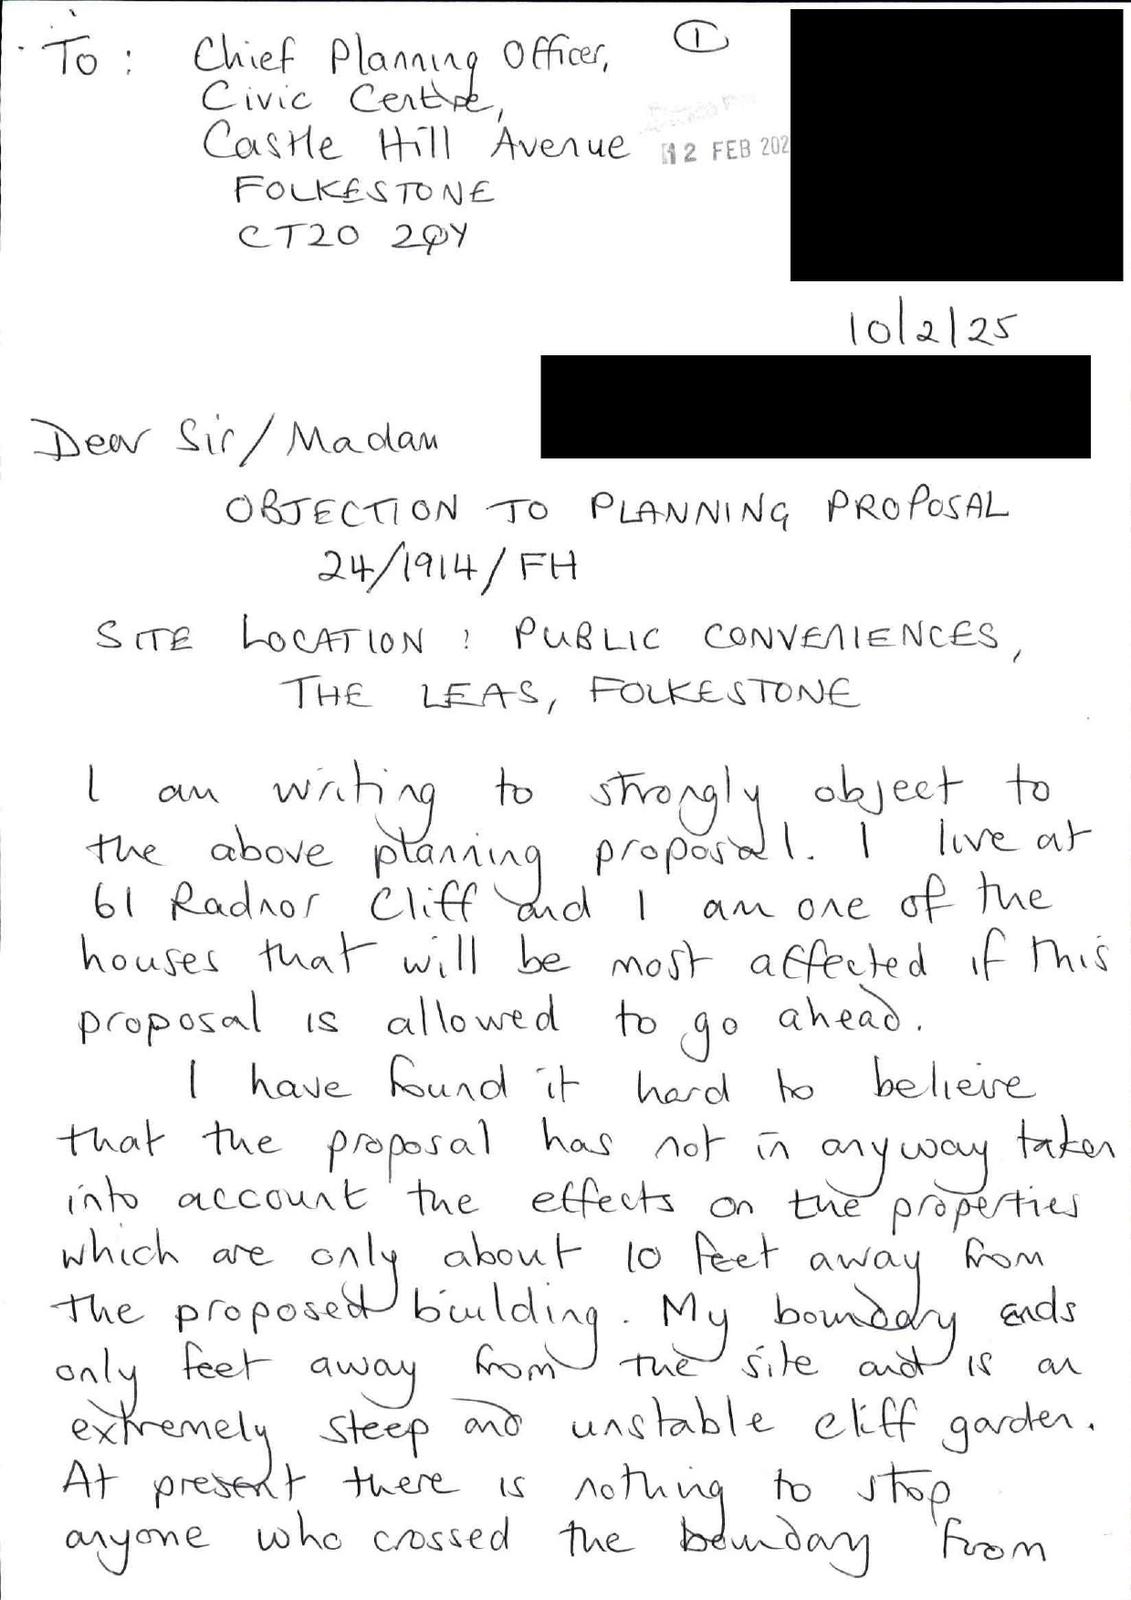 ①
To : Chief Planning Officer,
Civic Centre,
Castle Hill Avenue
12 FEB 202
FOLKESTONE
CT20 2QY
10/2/25
Dear Sir/Madam
OBJECTION TO PLANNING PROPOSAL
24/1914/FH
SITE LOCATION : PUBLIC CONVENIENCES,
THE LEAS, FOLKESTONE
I am writing to strongly object to
the above planning proposal. I live at
61 Radnor Cliff and I am one of the
houses that will be most affected if this
proposal is allowed to go ahead.
I have found it hard to believe
that the proposal has not in anyway taken
into account the effects on the properties
which are only about 10 feet away from
the proposed building. My boundary ends
only feet away from the site and is an
extremely steep and unstable cliff garden.
At present there is nothing to stop
anyone who crossed the boundary from